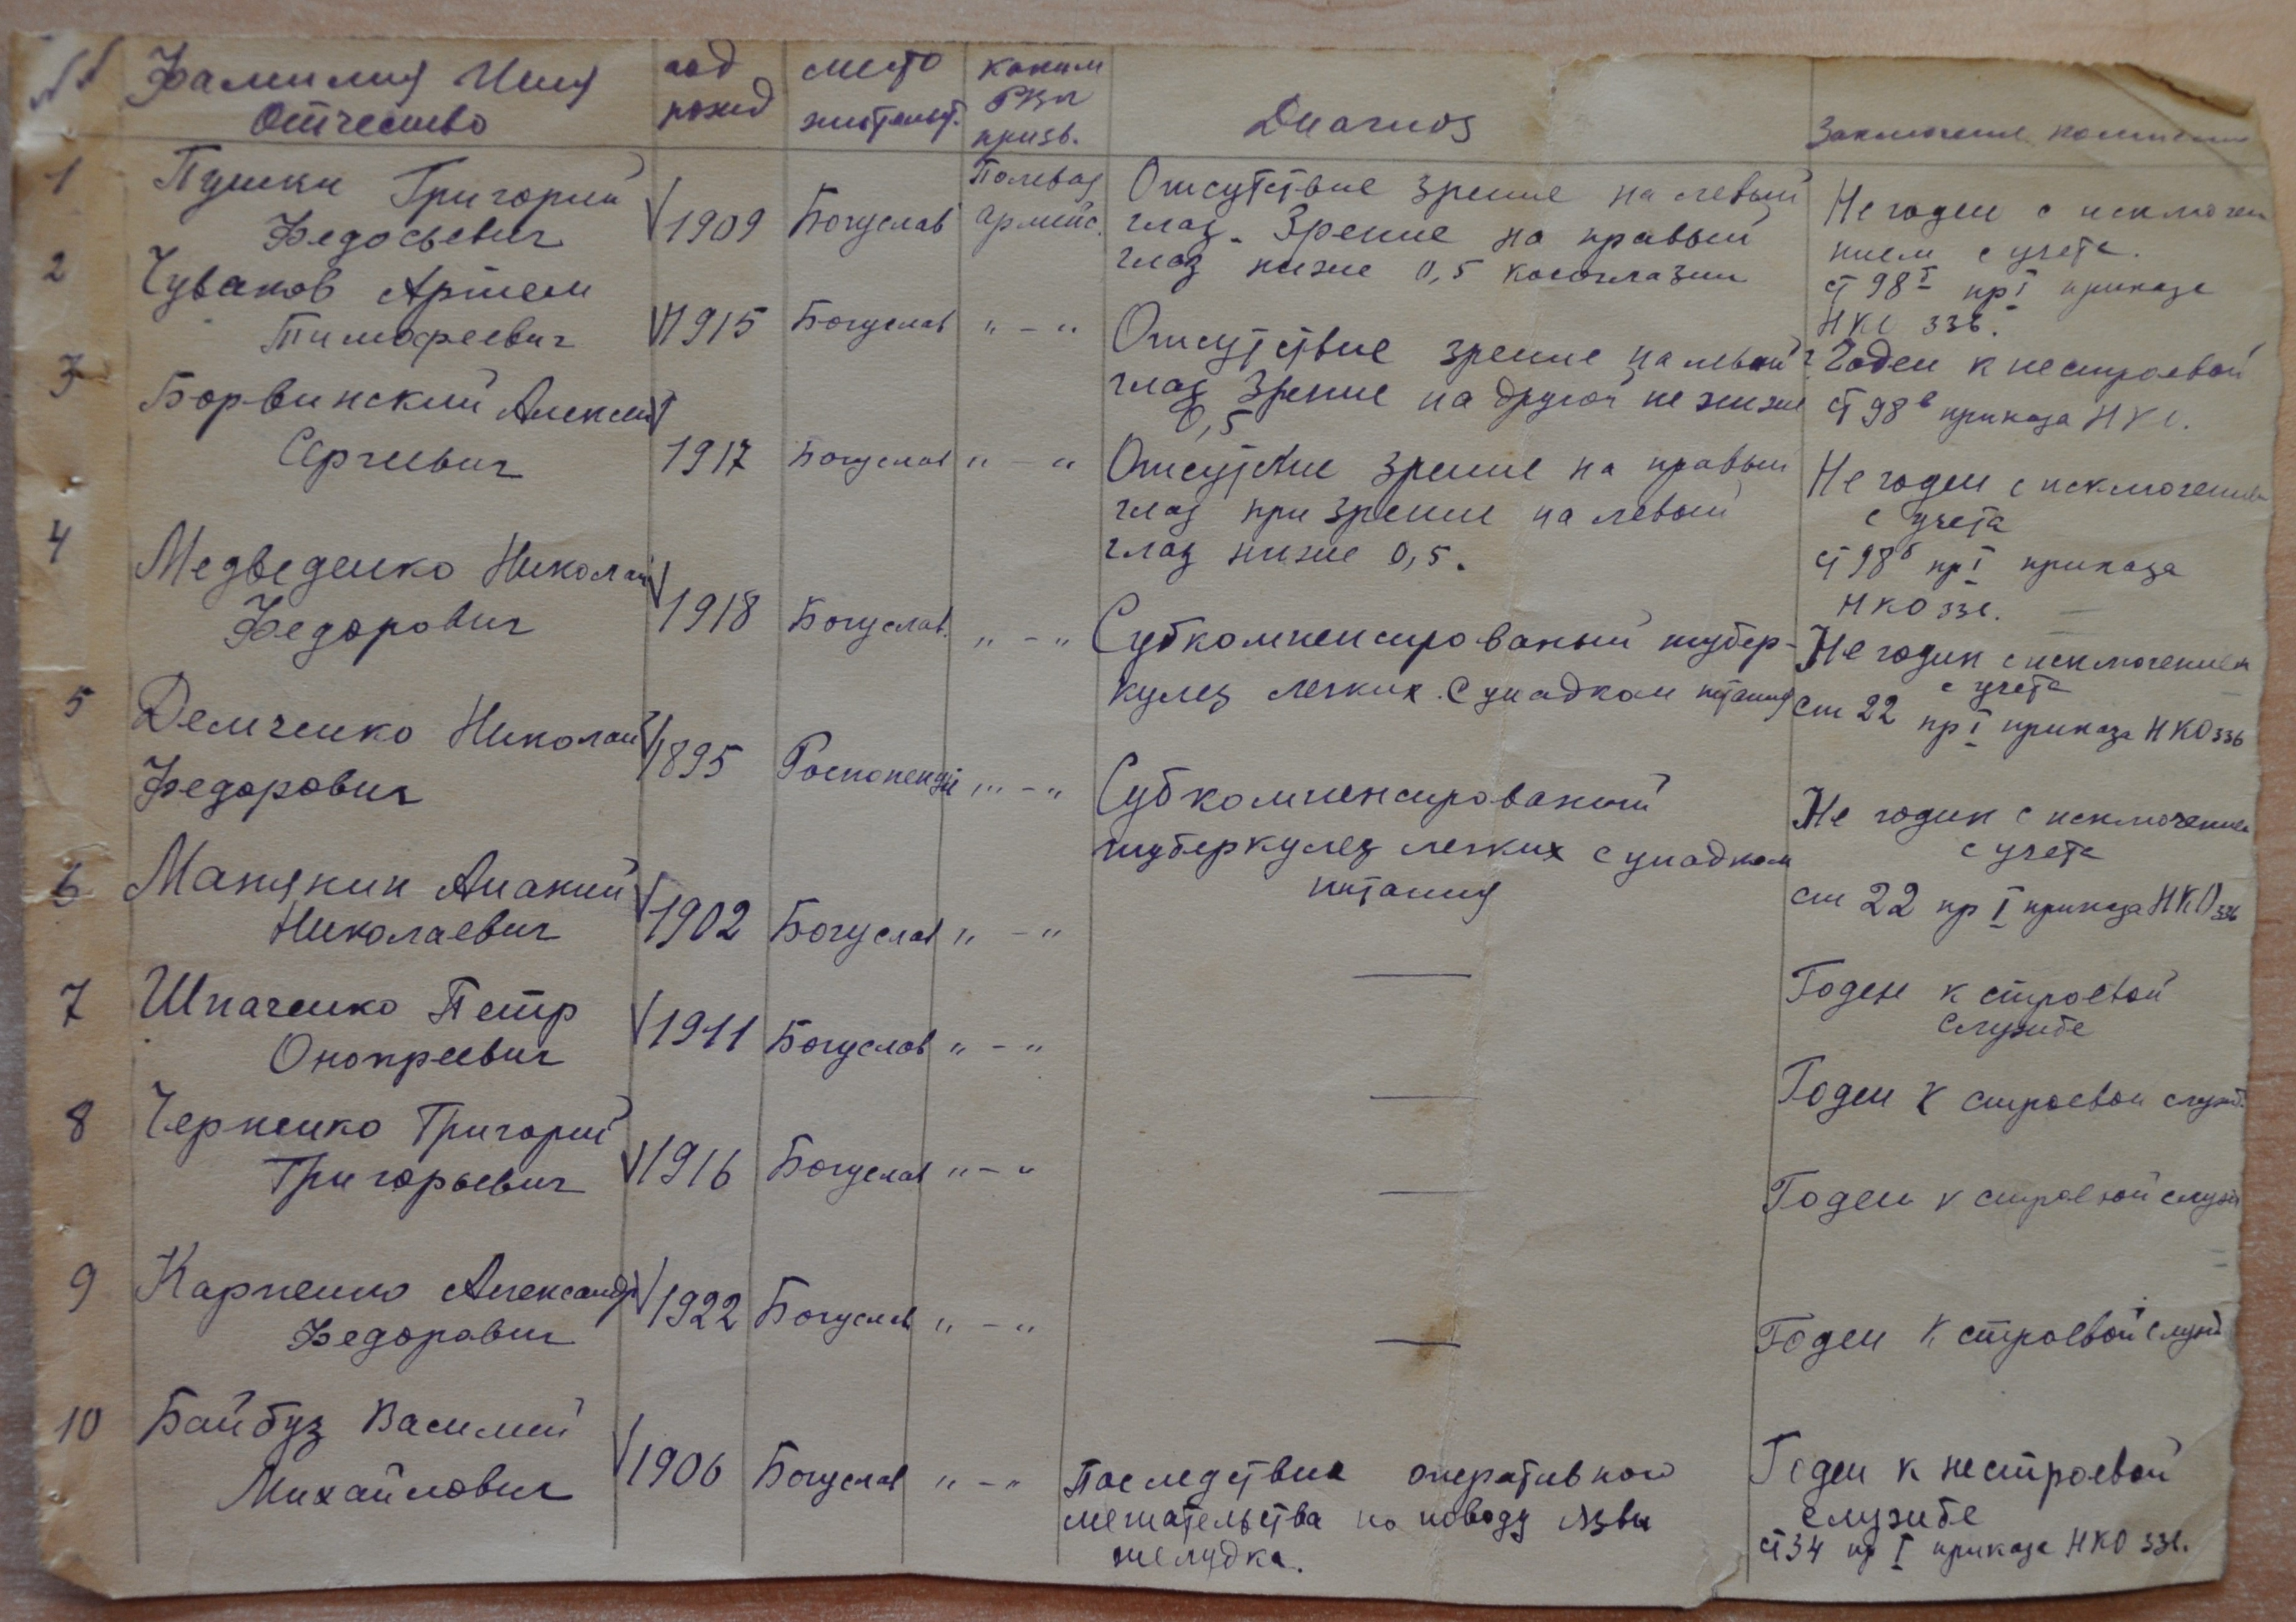 № Фамилия Имя Отчество год рожд место жительст. каким РВК призв. Диагноз Заключение комиссии
1 Пушки Григорий Федосьевич 1909 Богуслав Полевая армейс.
Отсутствие зрение на левый
глаз. Зрение на правый
глаз ниже 0,5 косоглазии
Не годен с исключен
нием с учета.
ст 98 пр I приказа
НКО 336.
2 Чуваков Артем Тимофеевич 1915 Богуслав " - "
Отсутствие зрение на левый
глаз Зрение на другой не ниже
0,5
Годен к нестроевой
ст 98 в приказа НКО.
3 Борвинский Алексей Сергиевич 1917 Богуслав " - "
Отсутствие зрение на правый
глаз при зрение на левый
глаз ниже 0,5.
Не годен с исключением
с учета
ст 98 б пр I приказа
НКО 336.
4 Медведенко Николай Федорович 1918 Богуслав. " - "
Субкомпенсированый тубер-
кулез легких. С упадком питания
Не годин с исключением
с учета
ст 22 пр I приказа НКО 336
5 Демченко Николай Федорович 1895 " - "
Субкомпенсированый
туберкулез легких с упадком
питания
Не годин с исключением
с учета
ст 22 пр I приказа НКО 336
6 Манякин Апакий Николаевич 1902 Богуслав " - " —
Годен к строевой
службе
7 Шпаченко Петр Оноприевич 1911 Богуслав " - " —
Годен к строевой служб.
8 Черненко Григорий Григорьевич 1916 Богуслав " - " —
Годен к строевой служ
9 Карпенко Александр Федорович 1922 Богуслав " - " —
Годен к строевой служб
10 Байбуз Василий Михайлович 1906 Богуслав " - "
Последствие оперативного
мешательства по поводу язвы
желудка.
Годен к нестроевой
службе
ст 34 пр I приказа НКО 336.